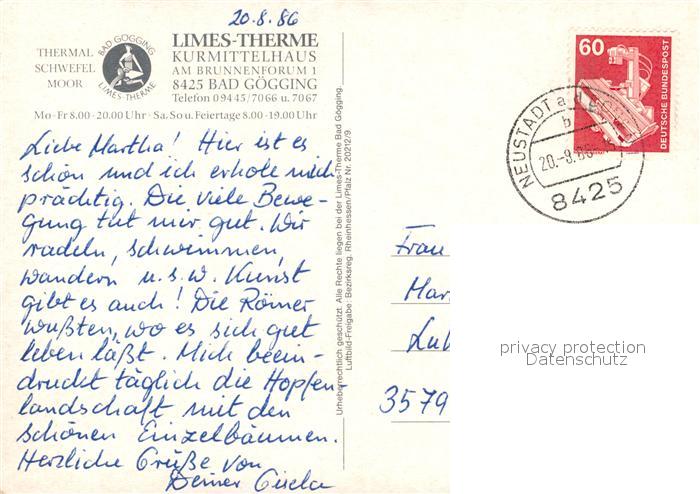 20.8.86
THERMAL
SCHWEFEL
MOOR
BAD GÖGGING
LIMES-THERME
LIMES-THERME
KURMITTELHAUS
AM BRUNNENFORUM 1
8425 BAD GÖGGING
Telefon 09445/7066 u. 7067
Mo-Fr 8.00-20.00 Uhr · Sa. So u. Feiertage 8.00-19.00 Uhr
Liebe Martha! Hier ist es
schön und ich erhole mich
prächtig. Die viele Bewe-
gung tut mir gut. Wir
radeln, schwimmen,
wandern u.s.w. Kunst
gibt es auch! Die Römer
wußten, wo es sich gut
leben läßt. Mich beein-
druckt täglich die Hopfen-
landschaft mit den
schönen Einzelbäumen.
Herzliche Grüße von
Deiner Gisela
Urheberrechtlich geschützt. Alle Rechte liegen bei der Limes-Therme Bad Gögging.
Luftbild-Freigabe: Bezirksreg. Rheinhessen/Pfalz Nr. 20212/9.
60
DEUTSCHE BUNDESPOST
NEUSTADT a
b
20.-8.86
8425
Frau
Mar
3579
privacy protection
Datenschutz